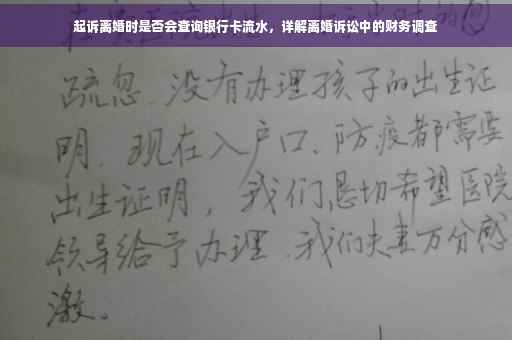 起诉离婚时是否会查询银行卡流水，详解离婚诉讼中的财务调查
疏忽、没有办理孩子的出生证
明、现在入户口、防疫都需要
出生证明，我们恳切希望医院
领导给予办理、我们夫妻万分感
激。